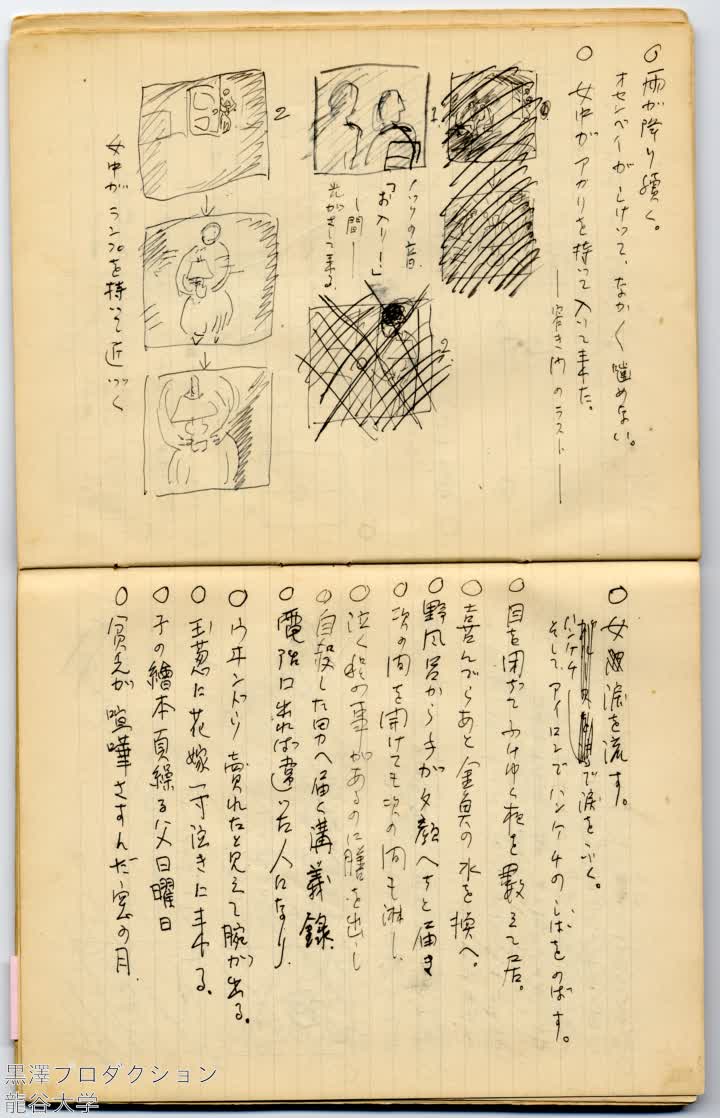 ○ 雨が降り續く。
オセンベイがしけいて、なかく噛めない。
○ 女中がアカリを持って入いて来た。
―容き内のラスト―
1.
ノックの音.
「お入り!」
―間―
光がさして来る.
2.
2
女中がランプを持いて近ヅく
○ 女 涙を流す。
ハンケチ で涙をふく。
そして、アイロンでハンケチのしばをのばす。
○ 目を閉ぢてふけゆく夜を數えて居。
○ 喜んでらあと金魚の水を換へ。
○ 野風呂から手が夕顔へちと届き
○ 次の間を開けても次の間も淋し
○ 泣く程の事があるのに膳を出し
○ 自殺した男へ届く講義録
○ 電話口出れば違った人になり.
○ ウヰンドウ 賣れたと見えて腕が出る.
○ 玉葱に花嫁一寸泣きに来る.
○ 子の繪本頁繰る父日曜日
○ 貧乏が喧嘩さすんだ窓の月.
黒澤プロダクション
龍谷大学